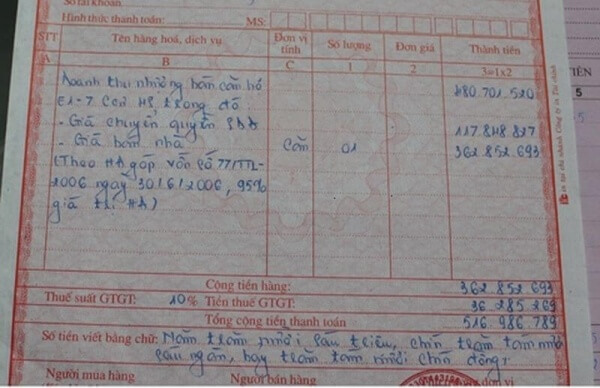 Số tài khoản
Hình thức thanh toán: MS:
STT Tên hàng hoá, dịch vụ Đơn vị tính Số lượng Đơn giá Thành tiền
A B C 1 2 3=1x2
Doanh thu nhượng bán căn hộ 480.701.520
E1-7 CC3 trong đó
- Giá chuyển quyền SDĐ 117.848.827
- Giá bán nhà Căn 01 362.852.693
(Theo HĐ góp vốn số 77/TTL-
2006 ngày 30/6/2006, 95%
giá trị HĐ)
Cộng tiền hàng: 362 852 693
Thuế suất GTGT: 10% Tiền thuế GTGT: 36 285 269
Tổng cộng tiền thanh toán 516 986 789
Số tiền viết bằng chữ: Năm trăm mười sáu triệu, chín trăm tám mươi
sáu ngàn, bảy trăm tám mươi chín đồng
Người mua hàng Người bán hàng
TIỀN
5